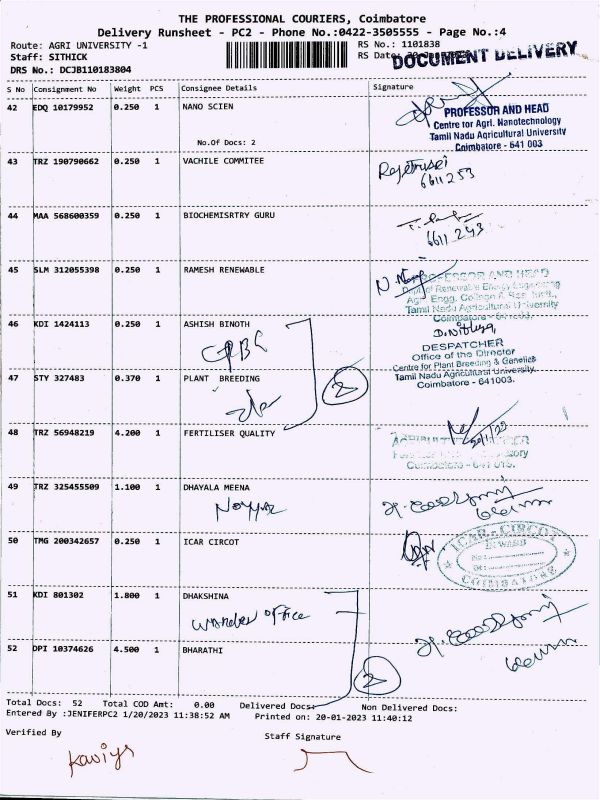 THE PROFESSIONAL COURIERS, Coimbatore
Delivery Runsheet - PC2 - Phone No.:0422-3505555 - Page No.:4
Route: AGRI UNIVERSITY -1
RS No.: 1101838
Staff: SITHICK
RS Date:
DOCUMENT DELIVERY
DRS No.: DCJB110183804
S No Consignment No Weight PCS Consignee Details Signature
42 EDQ 10179952 0.250 1 NANO SCIEN
No.Of Docs: 2
PROFESSOR AND HEAD
Centre for Agrl. Nanotechnology
Tamil Nadu Agricultural University
Coimbatore - 641 003
43 TRZ 190790662 0.250 1 VACHILE COMMITEE
6611253
44 MAA 568600359 0.250 1 BIOCHEMISRTRY GURU
6611243
45 SLM 312055398 0.250 1 RAMESH RENEWABLE
PROFESSOR AND HEAD
Dept. of Renewable Energy Engineering
Agrl. Engg. College & Res. Instt.,
Tamil Nadu Agricultural University
Coimbatore - 641003.
46 KDI 1424113 0.250 1 ASHISH BINOTH
CPBG
D. Nithya,
DESPATCHER
Office of the Director
Centre for Plant Breeding & Genetics
Tamil Nadu Agricultural University
Coimbatore - 641003.
47 STY 327483 0.370 1 PLANT BREEDING
2
48 TRZ 56948219 4.200 1 FERTILISER QUALITY
49 TRZ 325455509 1.100 1 DHAYALA MEENA
50 TMG 200342657 0.250 1 ICAR CIRCOT
ICAR-CIRCOT
INWARD
No.:
COIMBATORE
51 KDI 801302 1.800 1 DHAKSHINA
Warden office
52 DPI 10374626 4.500 1 BHARATHI
2
Total Docs: 52 Total COD Amt: 0.00 Delivered Docs: Non Delivered Docs:
Entered By :JENIFERPC2 1/20/2023 11:38:52 AM Printed on: 20-01-2023 11:40:12
Verified By
Staff Signature
Kaviya